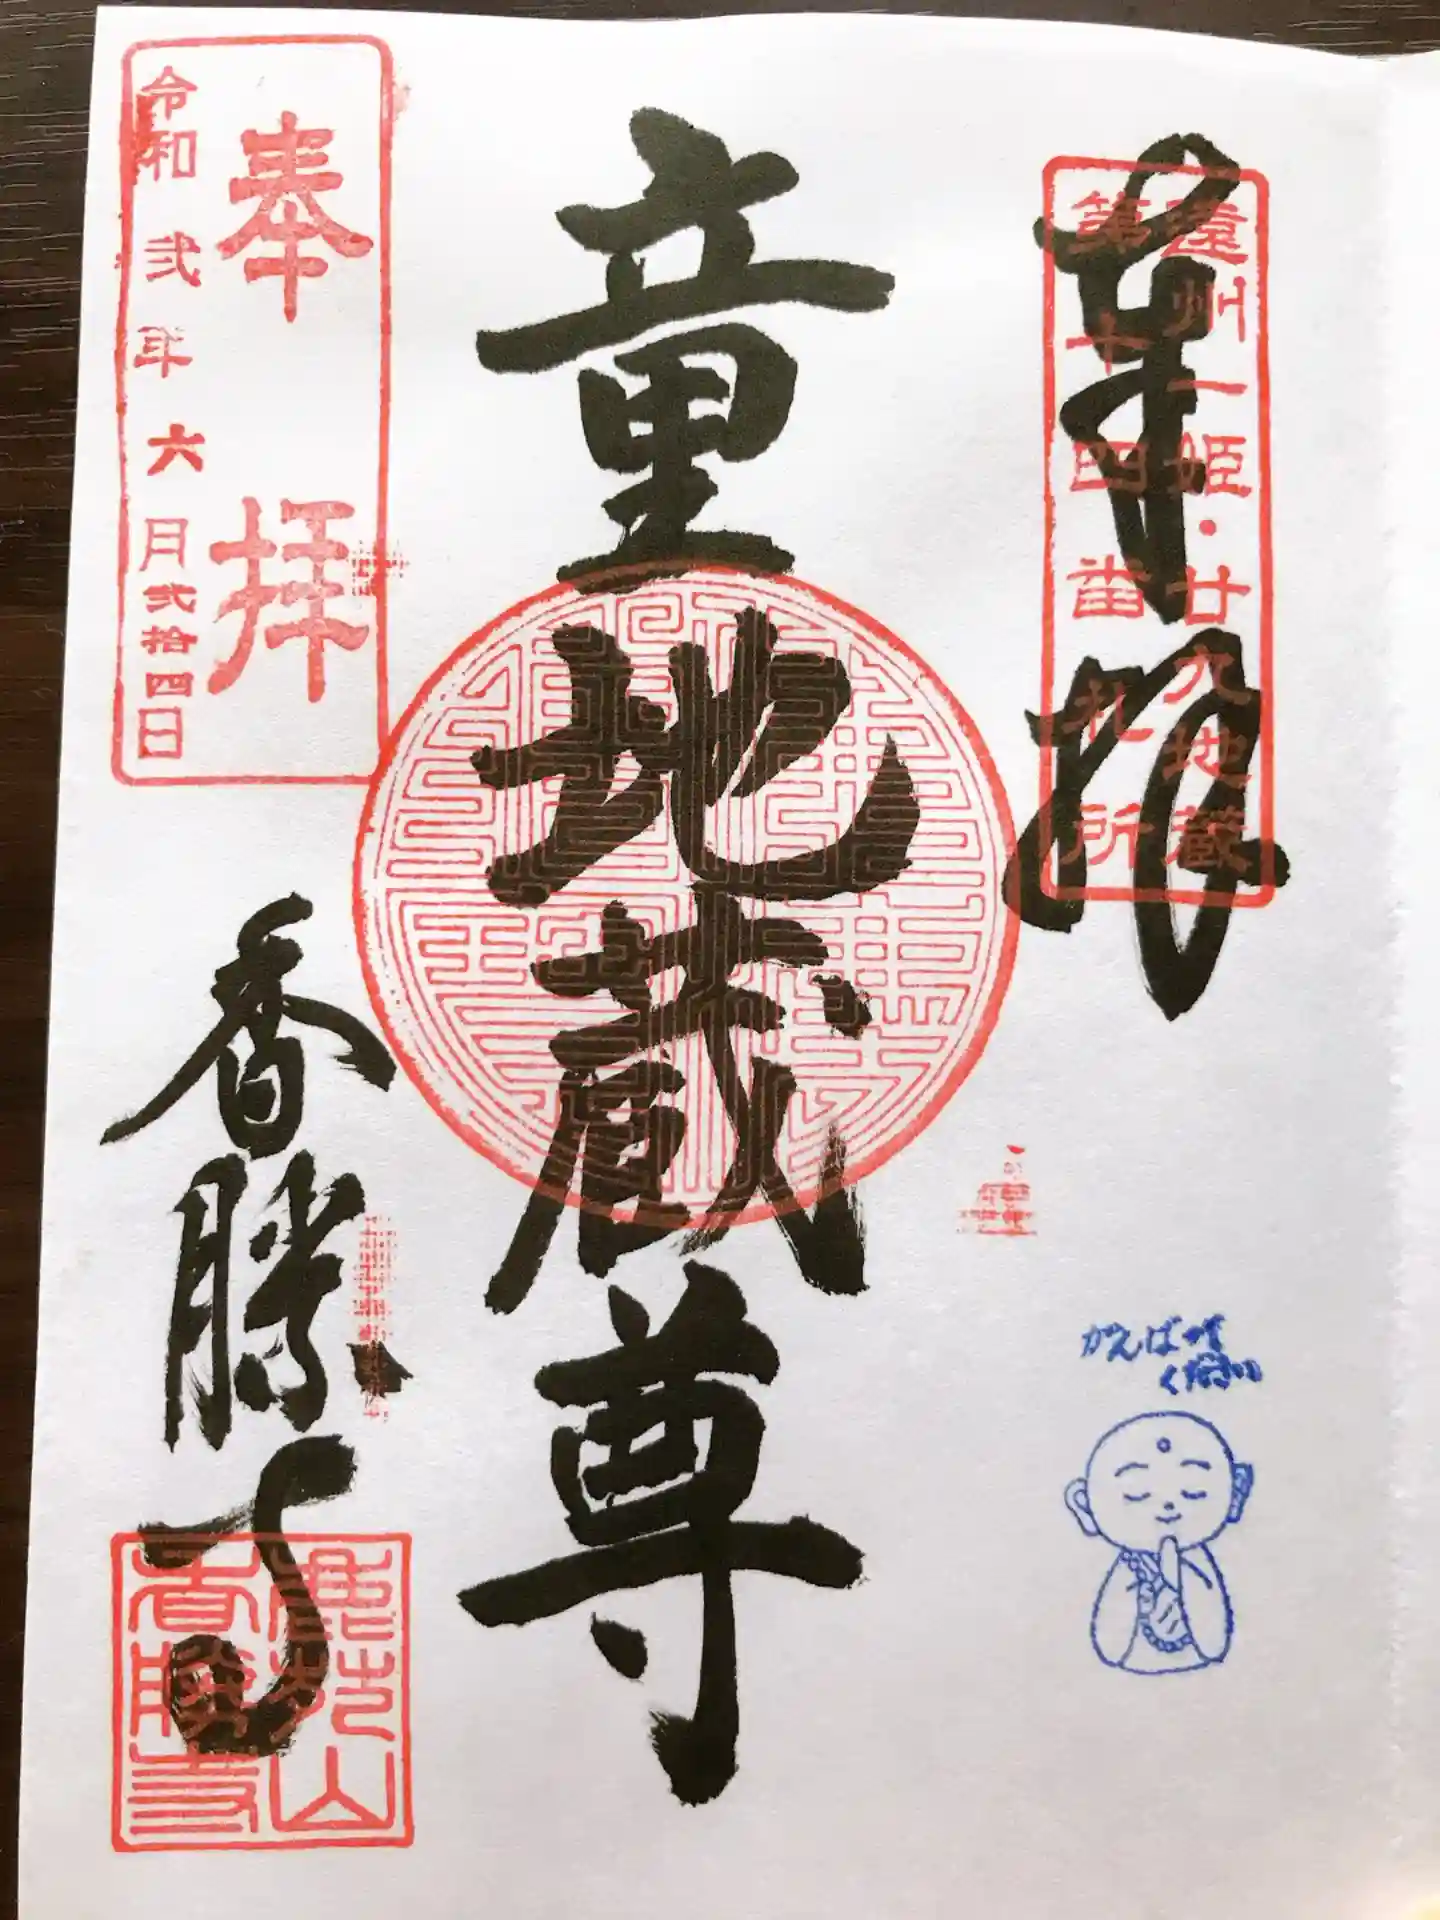 奉拝
遠州一姫・廿六地蔵
第十四番札所
童地蔵尊
奉拝
令和弐年六月弐拾四日
香勝寺
鹿苑山
香勝寺
がんばって
く